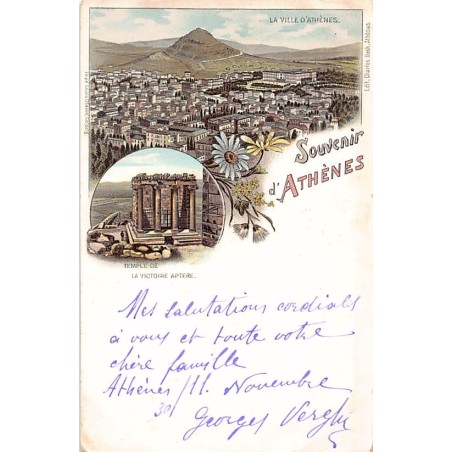 LA VILLE D'ATHÈNES.
Edit. Charles Beck, Athènes.
Souvenir
d'ATHÈNES
TEMPLE DE
LA VICTOIRE APTÈRE.
Mes salutations cordiales
à vous et toute votre
chère famille
Athènes / 11. Novembre
Georges